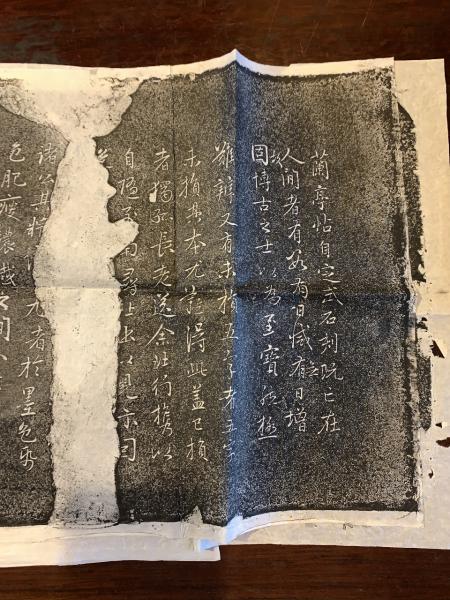 蘭亭帖自定武石刻既亡在
人間者有數有日減日增
故博古之士以為至寶然極
難辨又有未損五字者五字
未損其本尤難得此蓋已損
者獨孤長老送余北行攜以
自隨至南潯北出以見示因
諸公其精者於墨色紙
色肥瘦穠纖之間